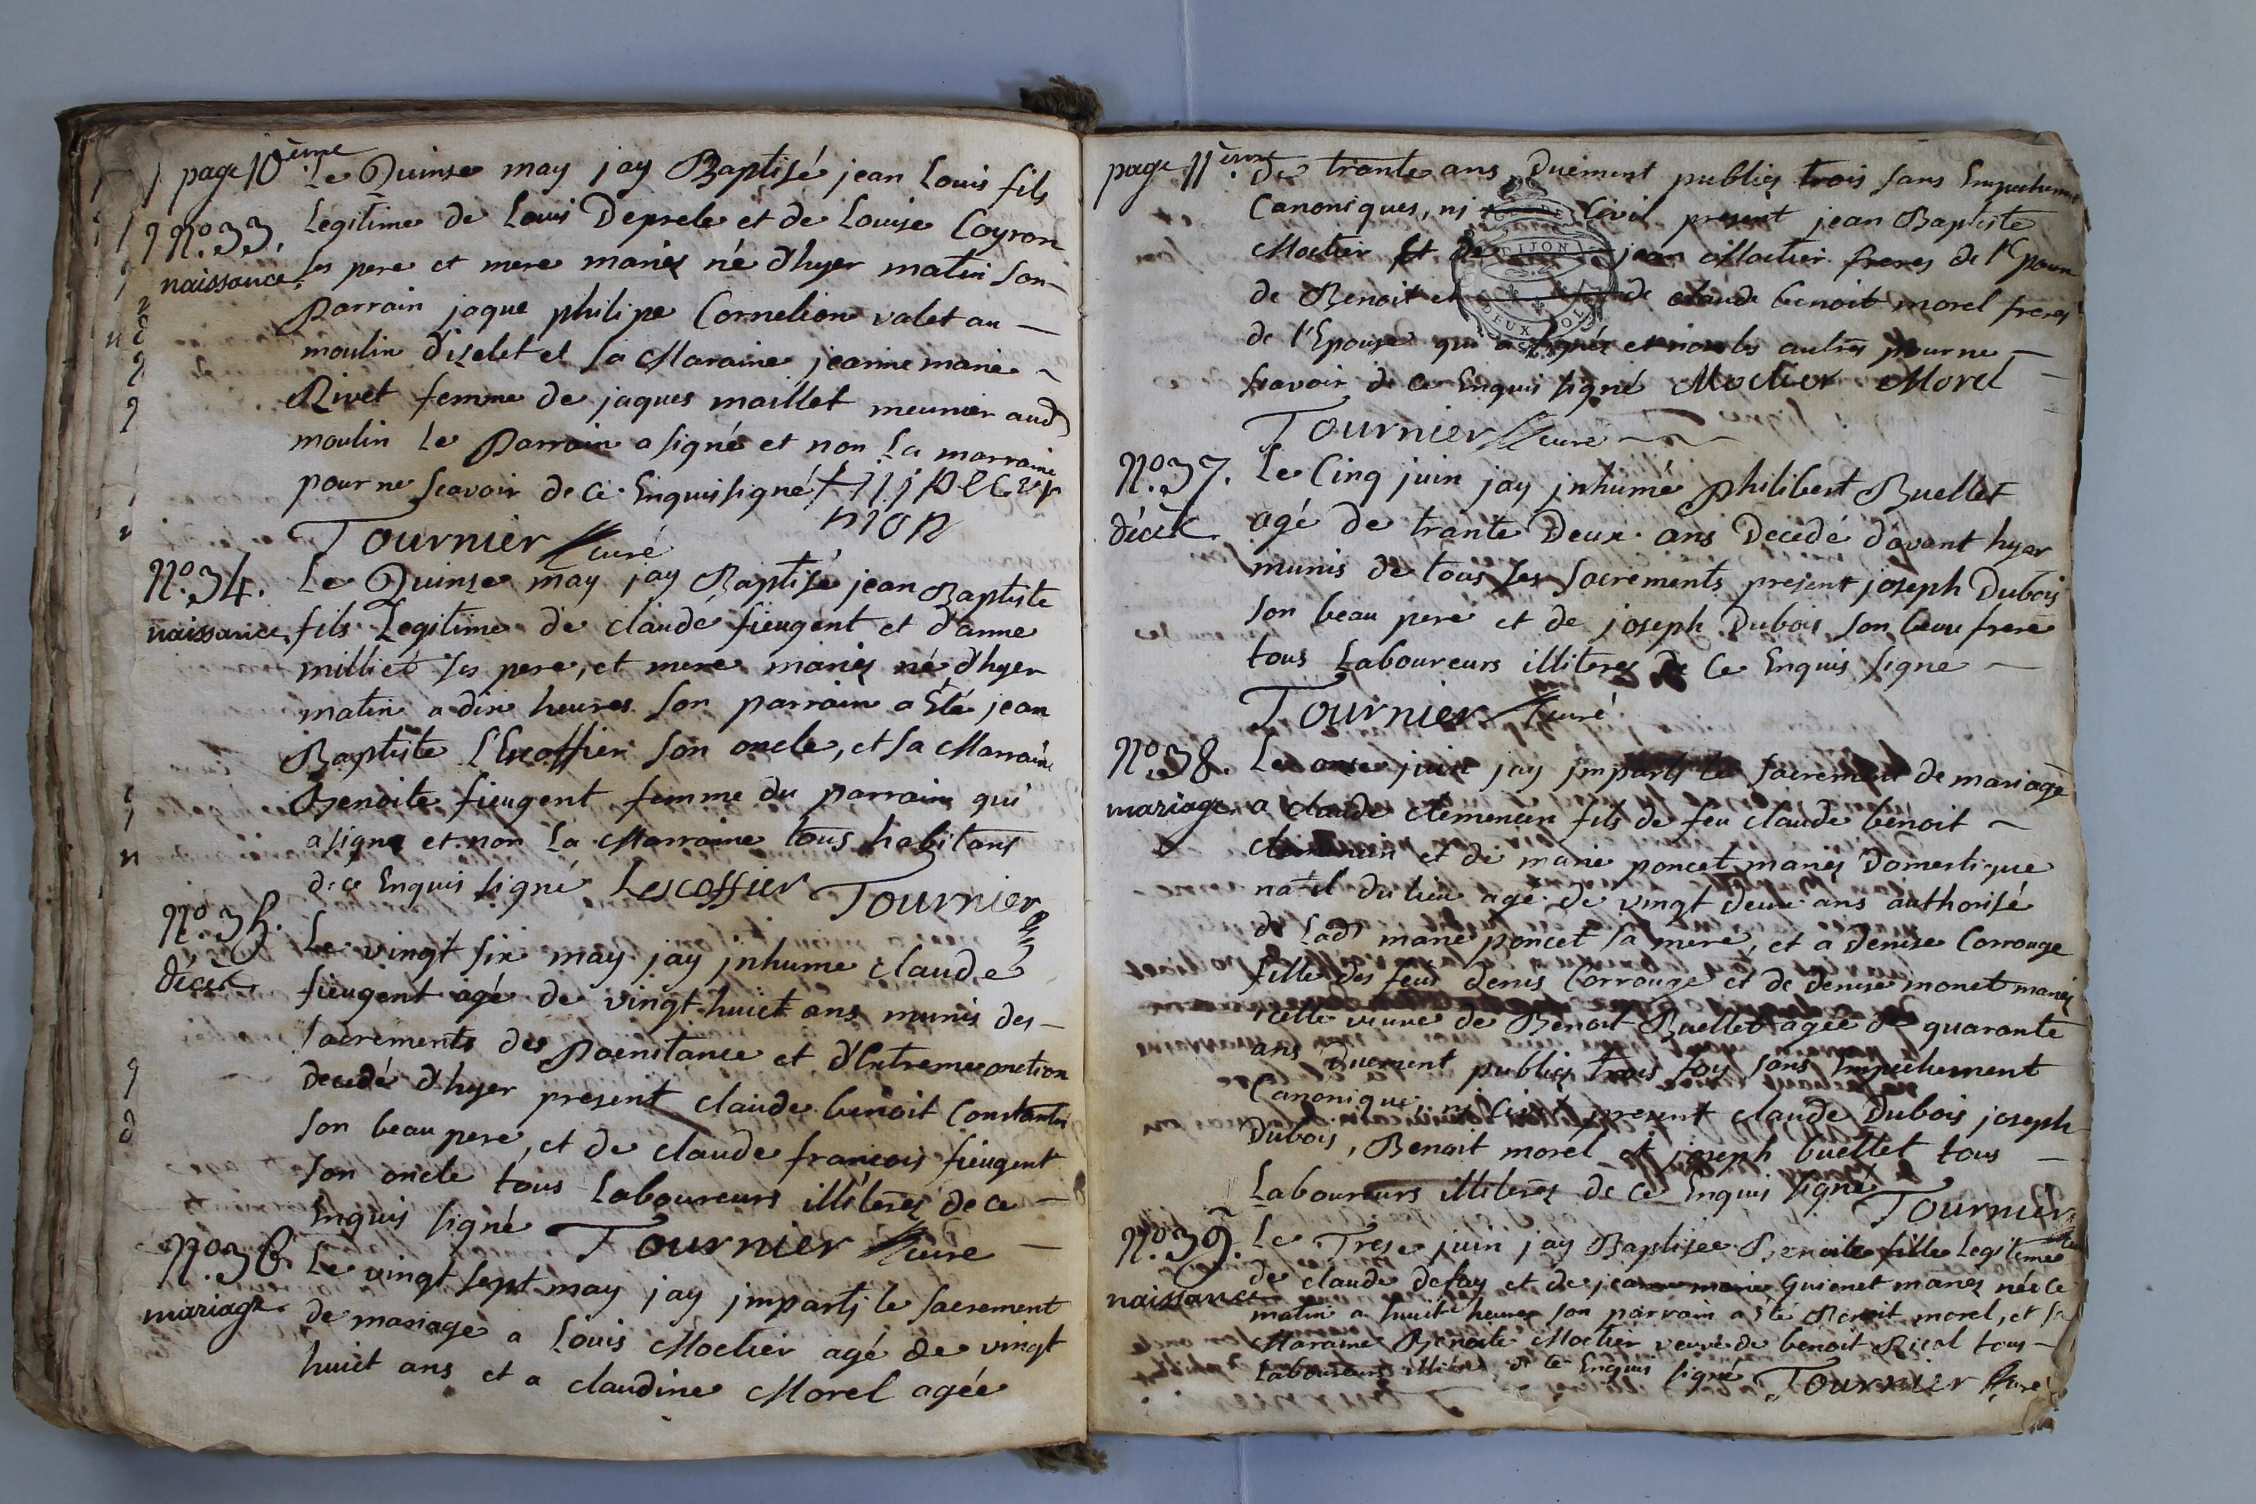 page 10ème
Le Quinse may jay Baptisé jean Louis fils
N.o 33.
naissance.
Legitime de Louis Deprele et de Louise Coyron
ses pere et mere mariés né d'hyer matin son
Parrain jaque philipe Cornelion valet au
moulin diselet et sa Maraine jeanne marie
Rivet femme de jaques maillet meunier aud
moulin le Parrain a signé et non la marraine
pour ne scavoir de ce Enquis signé
Tournier curé
N.o 34.
naissance.
Le Quinse may jay Baptisé jean Baptiste
fils Legitime de claude fieugent et d'anne
milliet ses pere, et mere mariés né d'hyer
matin a dix heures son parrain a Eté jean
Baptiste L'Escoffier son oncle, et sa Marraine
Benoite fieugent femme du parrain qui
a signe et non la Marraine tous habitans
de ce Enquis signé Lescoffier Tournier curé
N.o 35.
décès.
Le vingt six may jay jnhume claude
fieugent agé de vingt huict ans munis des
sacrements des Poenitance et d'Extremeonction
decedé d'hyer present claude benoit Constantin
son beau pere, et de claude francois fieugent
son oncle tous Laboureurs illiterés de ce
Enquis signé Tournier curé
N.o 36.
mariage.
Le vingt sept may jay jmpartj le sacrement
de mariage a Louis Moctier agé de vingt
huict ans et a claudine Morel agée
page 11ème
de trante ans Duëment publiés trois sans Empechement
Canoniques, nj Civil present jean Baptiste
Moctier et de jean Moctier freres de
de Benoit et de claude benoit morel freres
de l'Epouse qui a signés et non les autres pour ne
scavoir de ce Enquis signé Moctier Morel
Tournier curé
N.o 37.
décès.
Le Cinq juin jay jnhumé Philibert Buellet
agé de trante Deux ans Decedé d'avant hyer
munis de tous les sacrements present joseph Dubois
son beau pere et de joseph Dubois son beau frere
tous Laboureurs illiterés de ce Enquis signé
Tournier curé
N.o 38.
mariage.
Le onse juin jay jmpartj le sacrement de mariage
a claude clemencin fils de feu claude benoit
clemencin et de marie poncet mariés Domestique
natif du lieu agé de vingt deux ans authorisé
de lad marie poncet sa mere, et a denise Corrouge
fille des feus denis Corrouge et de denise monet mariés
icelle veuve de Benoit Buellet agée de quarante
ans Duement publiés trois foys sans Empechement
Canonique, nj Civil present claude Dubois joseph
Dubois, Benoit morel et joseph buellet tous
Laboureurs illiterés de ce Enquis signé Tournier
N.o 39.
naissance
Le Trese juin jay Baptisée Benoite fille Legitime
de claude defay et de jeanne marie Guienet mariés née ce
matin a huict heures son parrain a Eté Benoit morel, et sa
Maraine Benoite Moctier veuve de benoit Rical tous
Laboureurs illiterés de ce Enquis signé Tournier curé